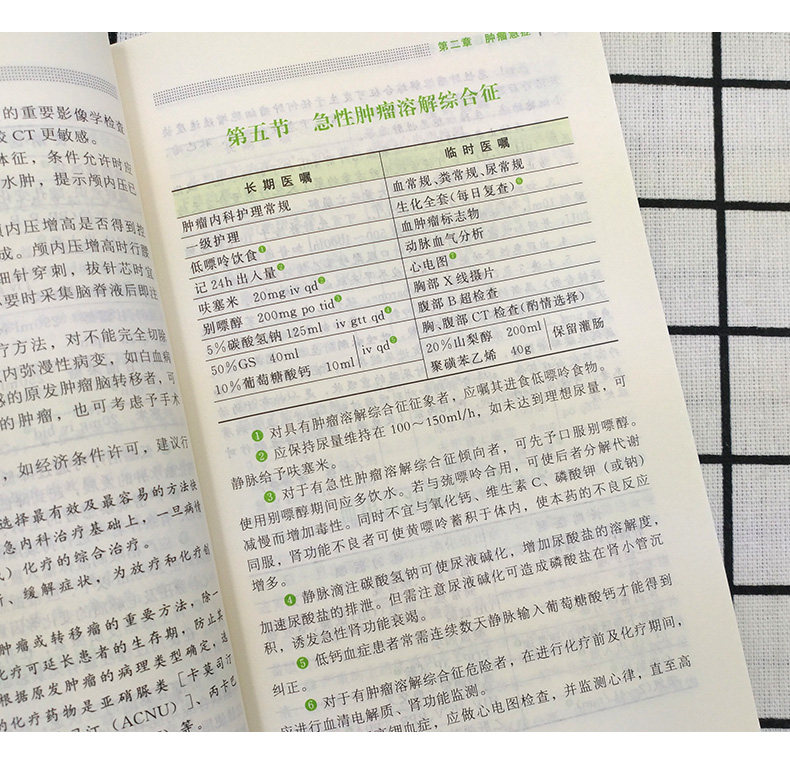 的重要影像学检查
CT 更敏感。
体征，条件允许时应
水肿，提示颅内压已
内压增高是否得到控
成。颅内压增高时行腰
细针穿刺，拔针芯时宜
要时采集脑脊液后即注
疗方法，对不能完全切除
内弥漫性病变，如白血病
感的原发肿瘤脑转移者，可
的肿瘤，也可考虑予手术
，如经济条件许可，建议行
选择最有效及最容易的方法
急内科治疗基础上，一旦病情
化疗的综合治疗。
、缓解症状，为放疗和化疗创
肿瘤或转移瘤的重要方法，除一
化疗可延长患者的生存期，防止其
根据原发肿瘤的病理类型确定，选
的化疗药物是亚硝脲类［卡莫司汀
汀（ACNU）］、丙卡巴
等。
第二章 肿瘤急症
第五节 急性肿瘤溶解综合征
长期医嘱
肿瘤内科护理常规
一级护理
低嘌呤饮食❶
记 24h 出入量❷
呋塞米 20mg iv qd❷
别嘌醇 200mg po tid❸
5%碳酸氢钠 125ml iv gtt qd❹
50%GS 40ml
10%葡萄糖酸钙 10ml
iv qd❺
临时医嘱
血常规、粪常规、尿常规
生化全套（每日复查）❻
血肿瘤标志物
动脉血气分析
心电图❼
胸部 X 线摄片
腹部 B 超检查
胸、腹部 CT 检查（酌情选择）
20%山梨醇 200ml
聚磺苯乙烯 40g
保留灌肠
❶ 对具有肿瘤溶解综合征征象者，应嘱其进食低嘌呤食物。
❷ 应保持尿量维持在 100～150ml/h，如未达到理想尿量，可
静脉给予呋塞米。
❸ 对于有急性肿瘤溶解综合征倾向者，可先予口服别嘌醇。
使用别嘌醇期间应多饮水。若与巯嘌呤合用，可使后者分解代谢
减慢而增加毒性。同时不宜与氧化钙、维生素 C、磷酸钾（或钠）
同服，肾功能不良者可使黄嘌呤蓄积于体内，使本药的不良反应
增多。
❹ 静脉滴注碳酸氢钠可使尿液碱化，增加尿酸盐的溶解度，
加速尿酸盐的排泄。但需注意尿液碱化可造成磷酸盐在肾小管沉
积，诱发急性肾功能衰竭。
❺ 低钙血症患者常需连续数天静脉输入葡萄糖酸钙才能得到
纠正。
❻ 对于有肿瘤溶解综合征危险者，在进行化疗前及化疗期间，
应进行血清电解质、肾功能监测。
高钾血症，应做心电图检查，并监测心律，直至高